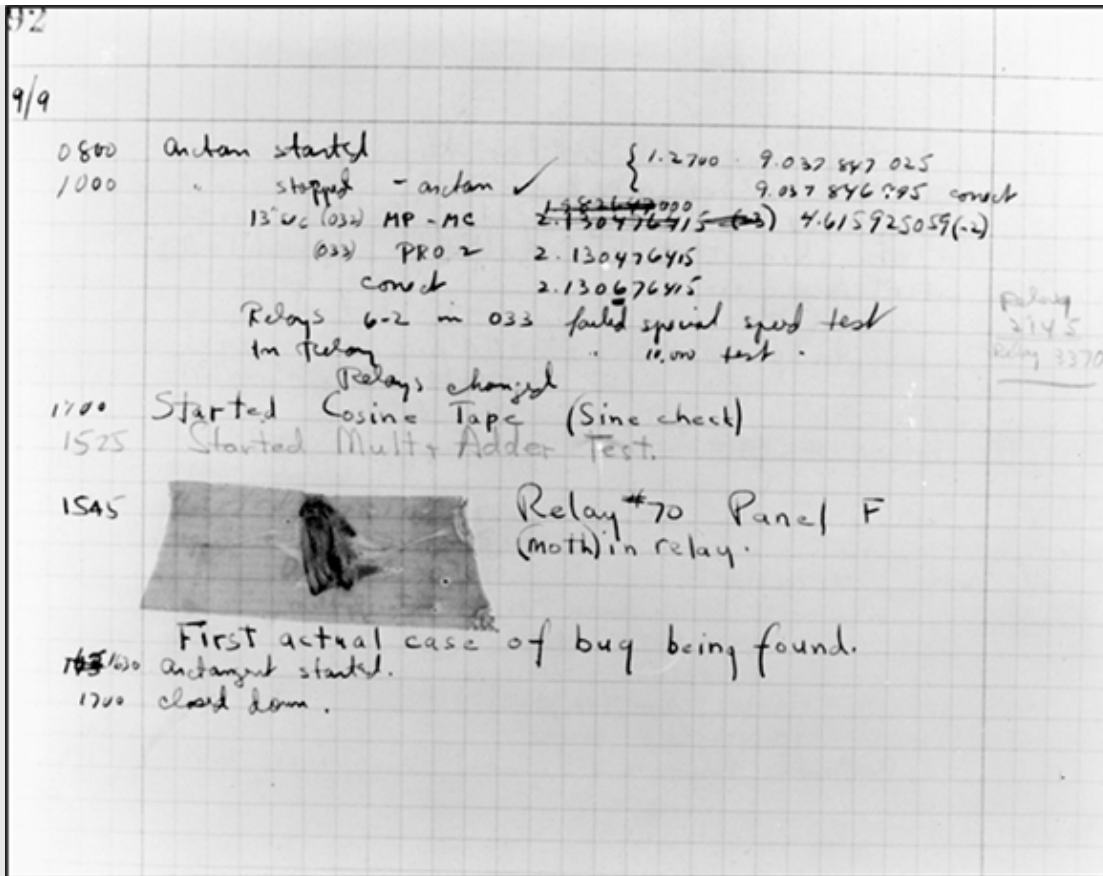 92
9/9
0800 arctan started { 1.2700 9.037 847 025
1000 " stopped - arctan ✓ { 9.037 846 795 correct
13"uc (032) MP - MC 2.130476415 (-3) 4.615925059(-2)
(033) PRO 2 2.130476415
correct 2.130676415
Relays 6-2 in 033 failed special speed test
In relay " 10,000 test .
Relays changed
Relay
2145
Relay 3370
1700 Started Cosine Tape (Sine check)
1525 Started Mult+Adder Test.
1545 Relay #70 Panel F
(moth) in relay.
First actual case of bug being found.
1630 arctangent started.
1700 closed down.